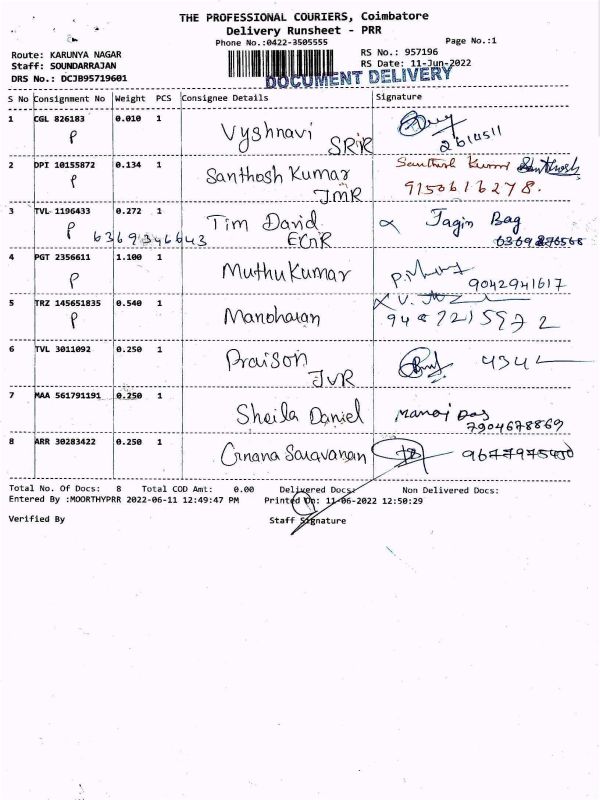 THE PROFESSIONAL COURIERS, Coimbatore
Delivery Runsheet - PRR
Phone No.:0422-3505555
Page No.:1
Route: KARUNYA NAGAR
RS No.: 957196
Staff: SOUNDARRAJAN
RS Date: 11-Jun-2022
DRS No.: DCJB95719601
DOCUMENT DELIVERY
S No Consignment No Weight PCS Consignee Details Signature
1 CGL 826183 0.010 1 Vyshnavi
P SRiR 2614511
2 DPI 10155872 0.134 1 Santhosh Kumar Santhosh Kumar Santhosh
P JMR 9150616278.
3 TVL 1196433 0.272 1 Tim David Jagin Bag
P 6369346643 ECnR 6369876568
4 PGT 2356611 1.100 1 Muthu Kumar
P 9042941617
5 TRZ 145651835 0.540 1 Manoharan
P
6 TVL 3011092 0.250 1 Praison 4342
JVR
7 MAA 561791191 0.250 1 Sheila Daniel Manoj Das
7904678869
8 ARR 30283422 0.250 1 Gnana Saravanan
Total No. Of Docs: 8 Total COD Amt: 0.00 Delivered Docs: Non Delivered Docs:
Entered By :MOORTHYPRR 2022-06-11 12:49:47 PM Printed On: 11-06-2022 12:50:29
Verified By Staff Signature